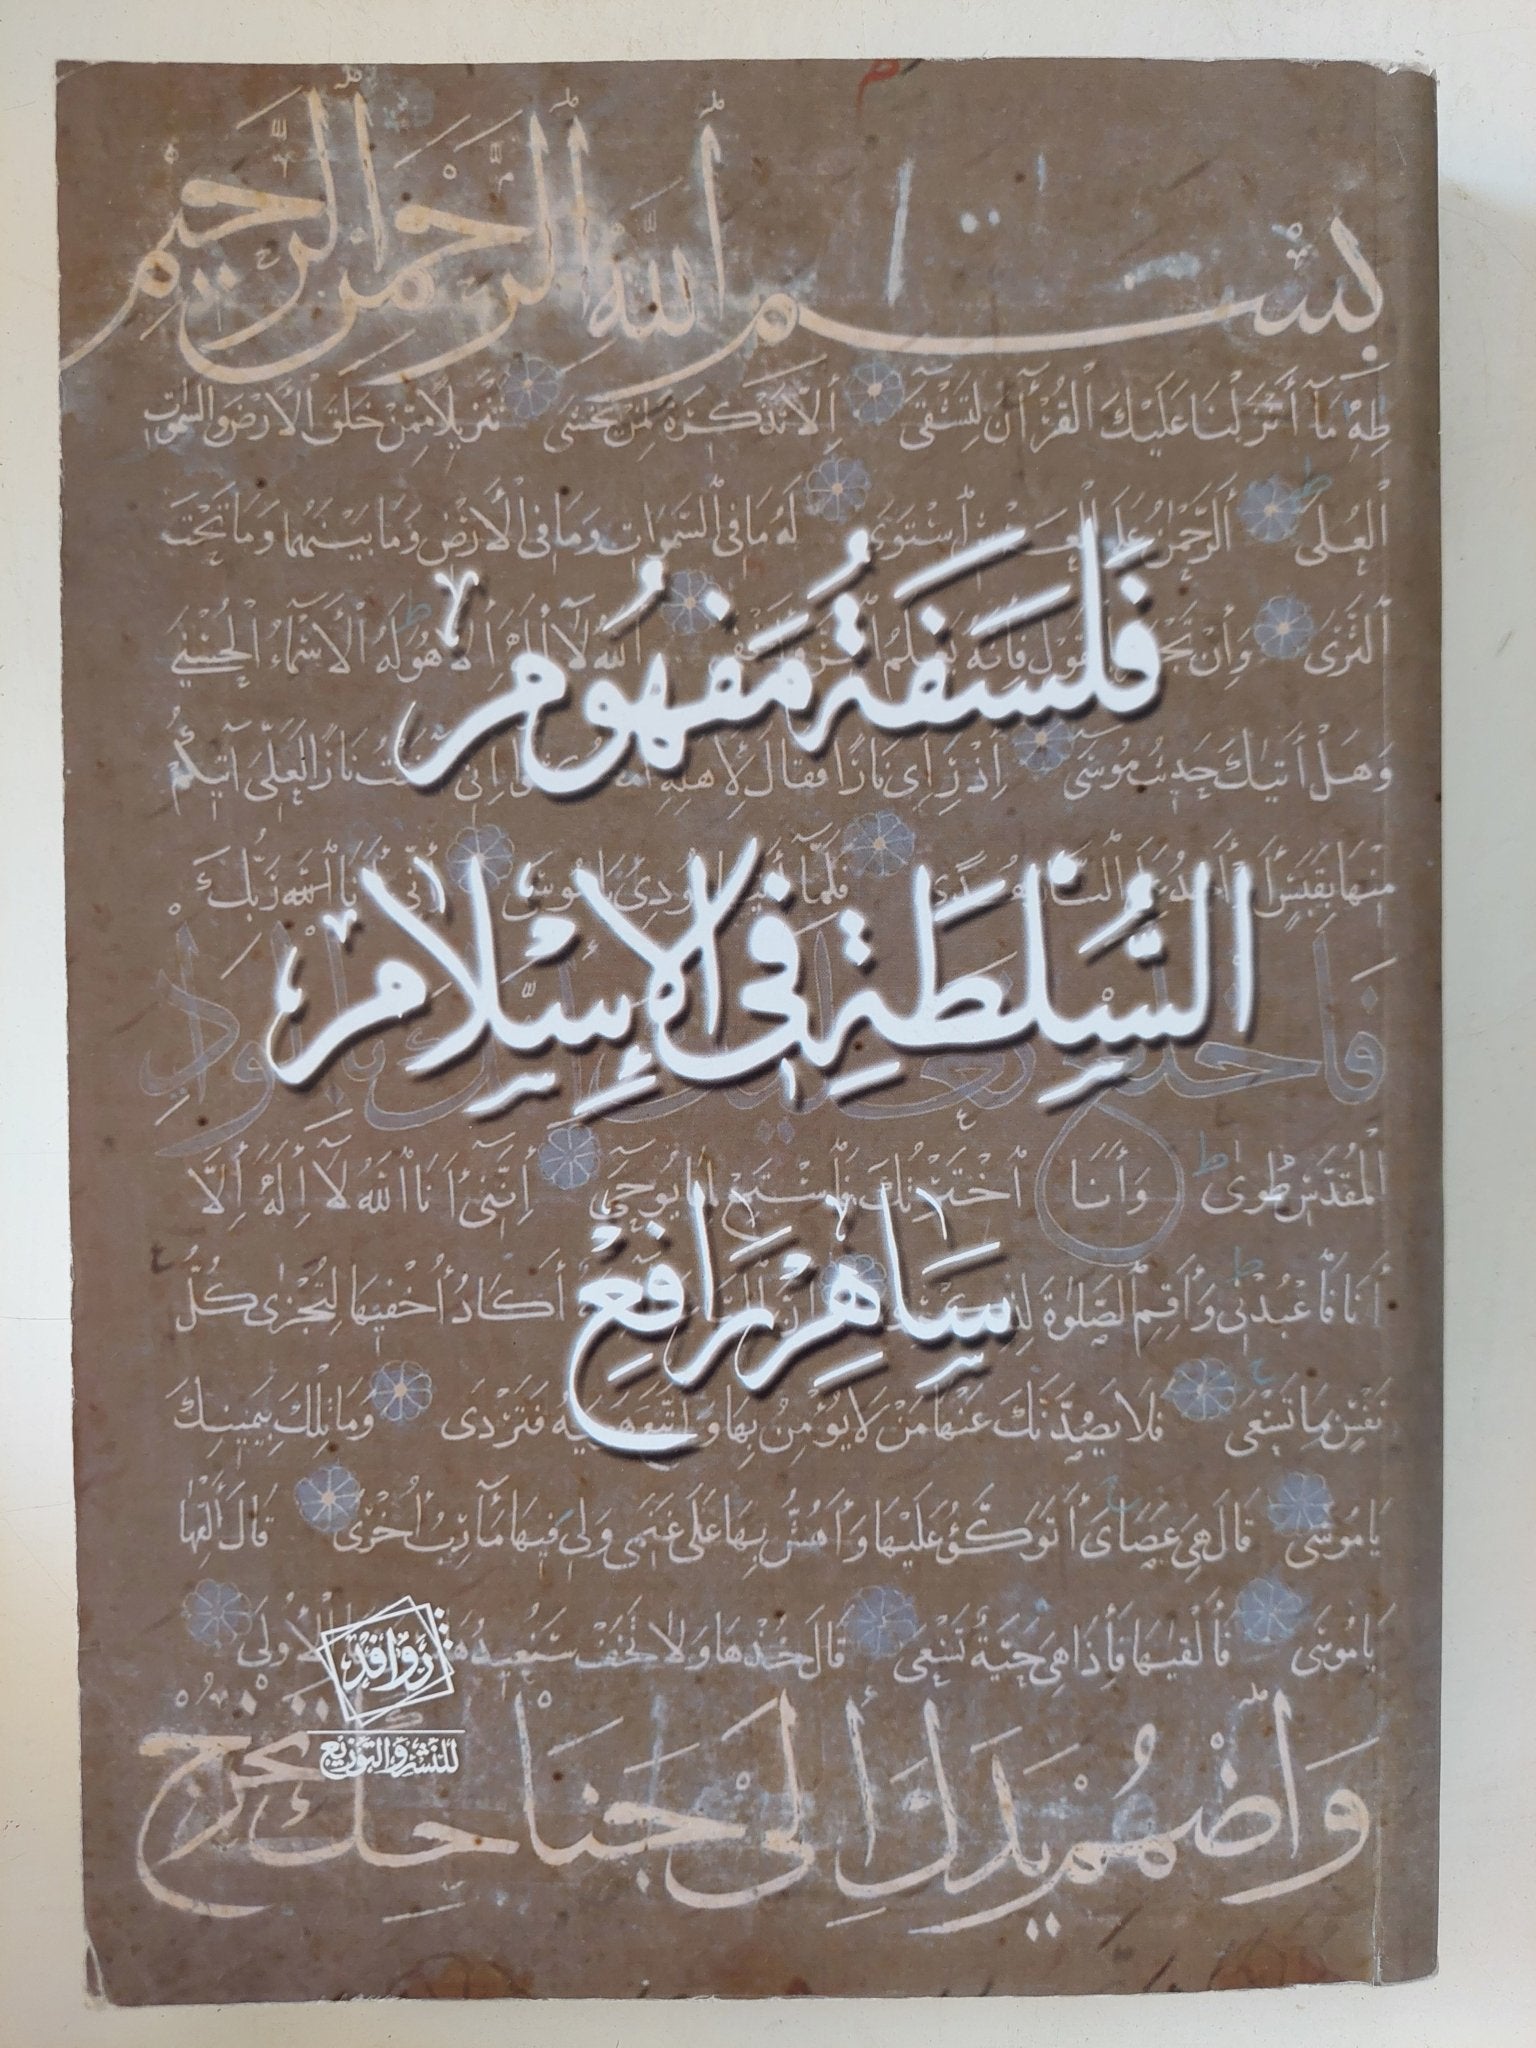 بسم الله الرحمن الرحيم
طه ما أنزلنا عليك القرآن لتشقى إلا تذكرة لمن يخشى تنزيلا ممن خلق الأرض والسموات
العلى الرحمن على استوى له ما في السموات وما في الأرض وما بينهما وما تحت
فَلسَفَةُ مَفهُوم
الثرى وإن بالقول فإنه يعلم الله لا إله إلا هو له الأسماء الحسنى
وهل أتيك حديث موسى إذ رأى نارا فقال لأهله إني نارا لعلي آتيكم
منها بقبس أو أجد على النار هدى فلما نودي يا موسى إني أنا الله ربك
السُّلطَةِ فِى الإِسْلام
فاخلع نعليك إنك بالواد
المقدس طوى وأنا اخترتك فاستمع لما يوحى إنني أنا الله لا إله إلا
سَاهِرْ رَافِعْ
أنا فاعبدني وأقم الصلوة أكاد أخفيها لتجزى كل
نفس ما تسعى فلا يصدنك عنها من لا يؤمن بها واتبع هويه فتردى وما تلك بيمينك
يا موسى قال هي عصاي أتوكؤ عليها وأهش بها على غنمي ولي فيها مآرب أخرى قال ألقها
يا موسى فألقيها فإذا هي حية تسعى قال خذها ولا تخف سنعيدها الأولى
روافد
للنشر والتوزيع
واضمم يدك إلى جناحك تخرج